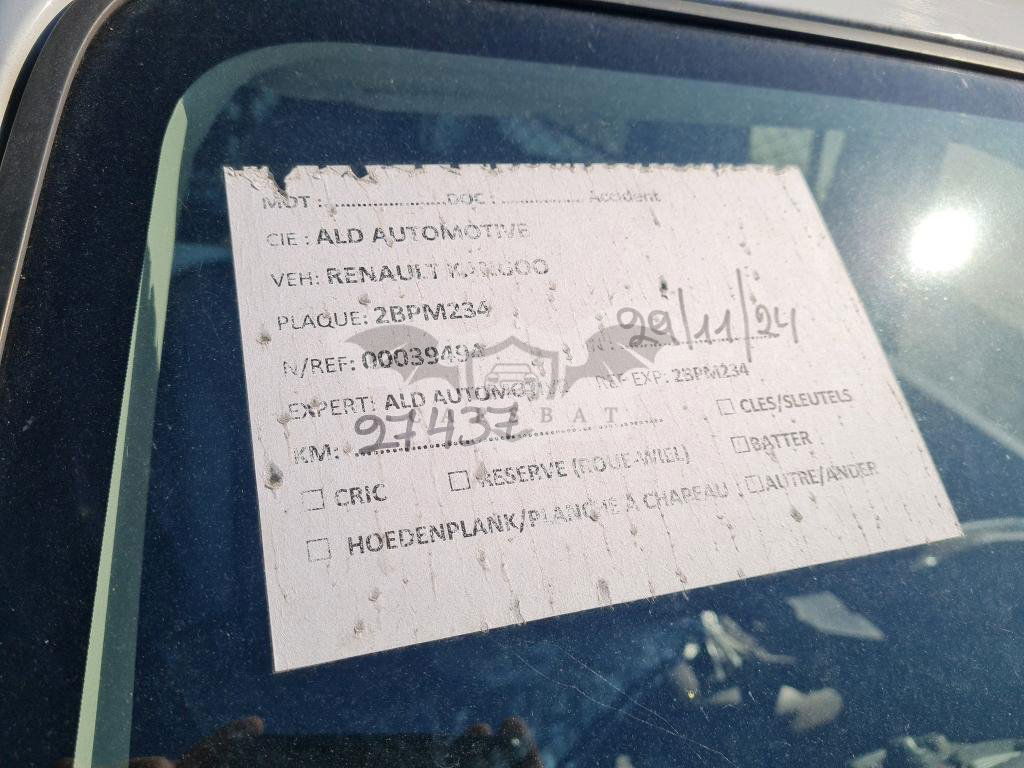 MOT : ......................DOC : ................. Accident
CIE : ALD AUTOMOTIVE
VEH: RENAULT KANGOO
PLAQUE: 2BPM234
29/11/24
N/REF: 00039494
EXPERT: ALD AUTOMOTIVE REF EXP: 2BPM234
KM: 27437
☐ CLES/SLEUTELS
☐ CRIC ☐ RESERVE (ROUE-WIEL) ☐ BATTER
☐ HOEDENPLANK/PLANCHE A CHAPEAU ☐ AUTRE/ANDER